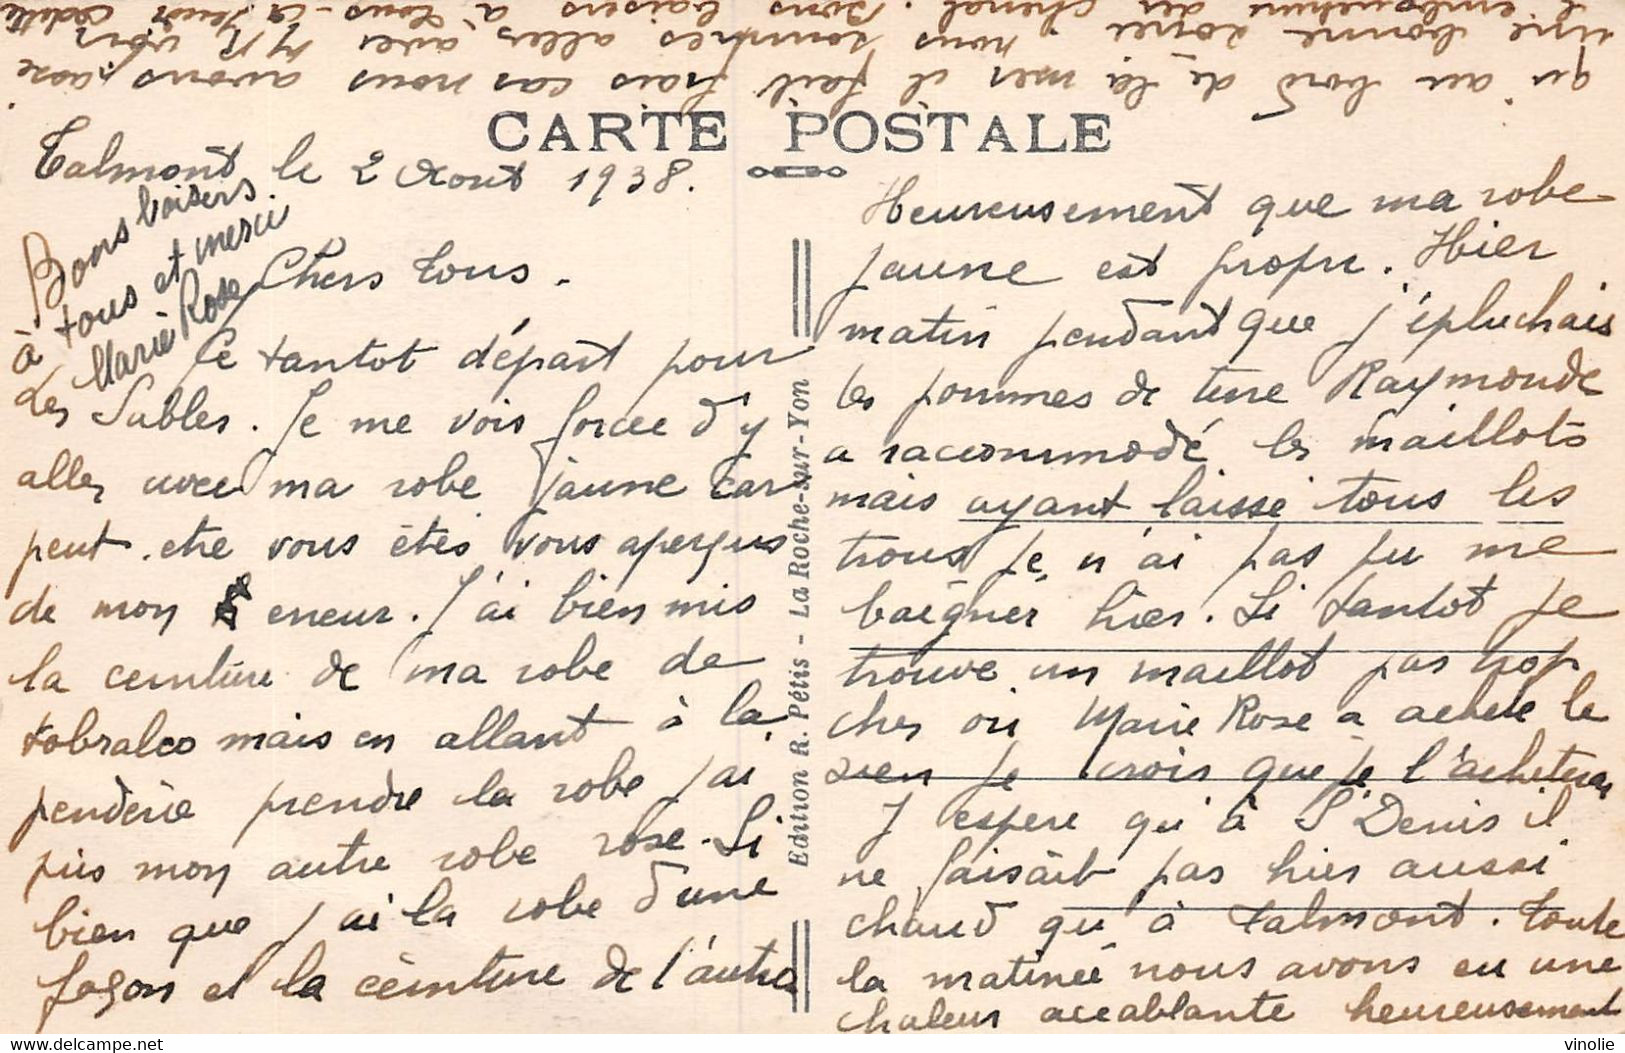 CARTE POSTALE
Talmont le 2 Aout 1938.
Bons baisers
à tous et merci
Marie Rose
Chers tous.
Ce tantot départ pour
Les Sables. Je me vois forcee d'y
aller avec ma robe jaune car
peut.etre vous étes vous aperçus
de mon erreur. J'ai bien mis
la ceinture de ma robe de
tobralco mais en allant à la
penderie prendre la robe j'ai
pris mon autre robe rose. Si
bien que j'ai la robe d'une
façon et la ceinture de l'autre
Edition R. Pétis - La Roche-sur-Yon
Heureusement que ma robe
jaune est propre. Hier
matin pendant que j'épluchais
les pommes de terre Raymonde
a raccommodé les maillots
mais ayant laissé tous les
trous je n'ai pas pu me
baigner hier. Si tantot je
trouve un maillot pas trop
cher où Marie Rose a acheté le
sien je crois que je l'acheterai
J'espere qu'à St Denis il
ne faisait pas hier aussi
chaud qu'à Talmont. Toute
la matinée nous avons eu une
chaleur accablante heureusement
qu'au bord de la mer il fait frais car nous avons
une bonne nous sommes allés avec Mr voir
l'embouchure du chenal. Bons baisers à tous